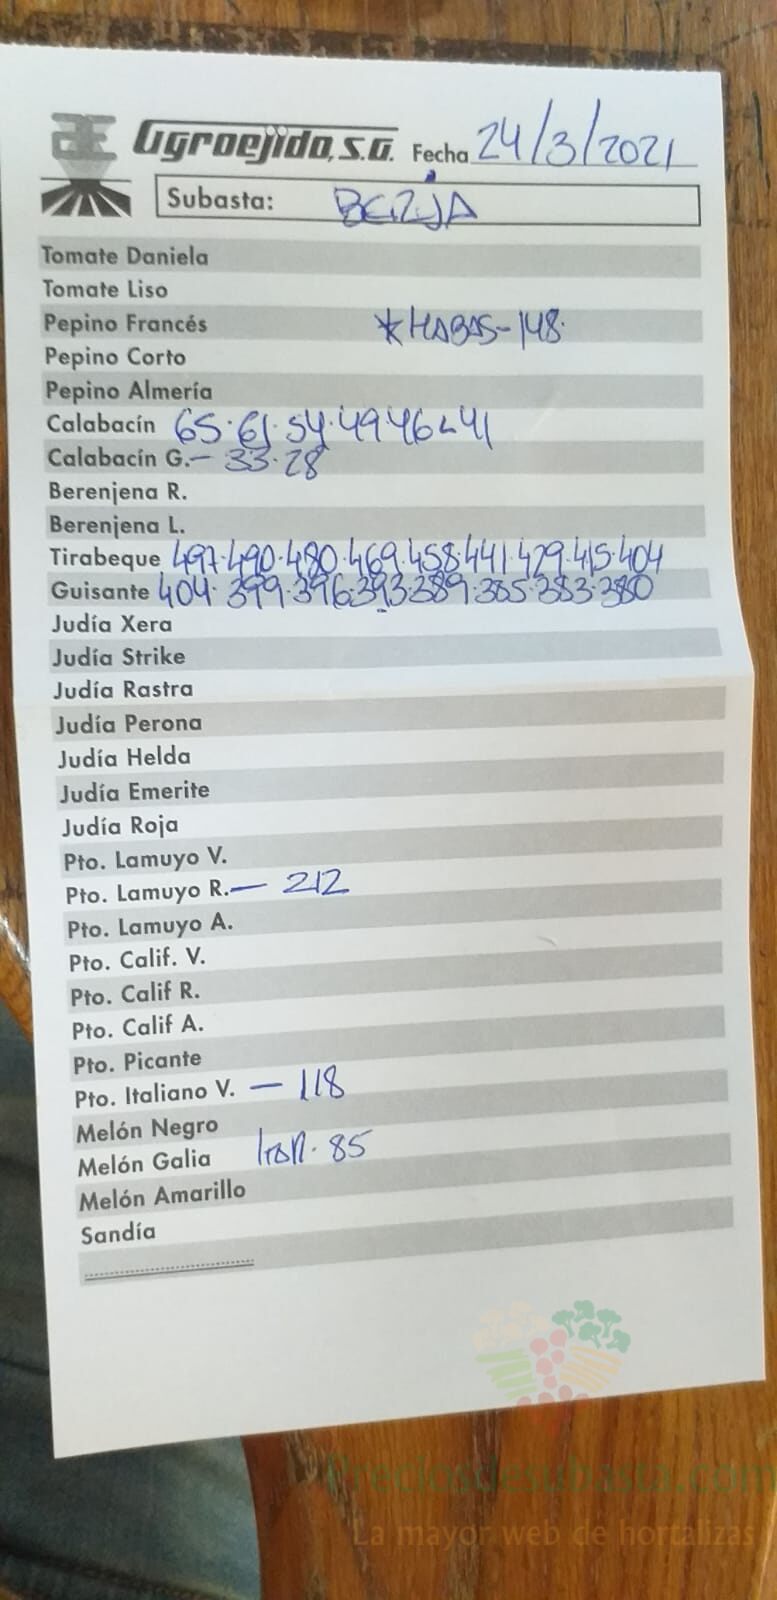 Agroejido, S.A. Fecha 24/3/2021
Subasta: BERJA
Tomate Daniela
Tomate Liso
Pepino Francés *HABAS-148.
Pepino Corto
Pepino Almería
Calabacín 65.61.54.49.46 41
Calabacín G.- 33.28
Berenjena R.
Berenjena L.
Tirabeque 497.490.480.469.458.441.429.415.404
Guisante 404.399.396.393.389.385.383.380
Judía Xera
Judía Strike
Judía Rastra
Judía Perona
Judía Helda
Judía Emerite
Judía Roja
Pto. Lamuyo V.
Pto. Lamuyo R.— 212
Pto. Lamuyo A.
Pto. Calif. V.
Pto. Calif R.
Pto. Calif A.
Pto. Picante
Pto. Italiano V. — 118
Melón Negro
Melón Galia 85
Melón Amarillo
Sandía
Preciosdesubasta.com
La mayor web de hortalizas